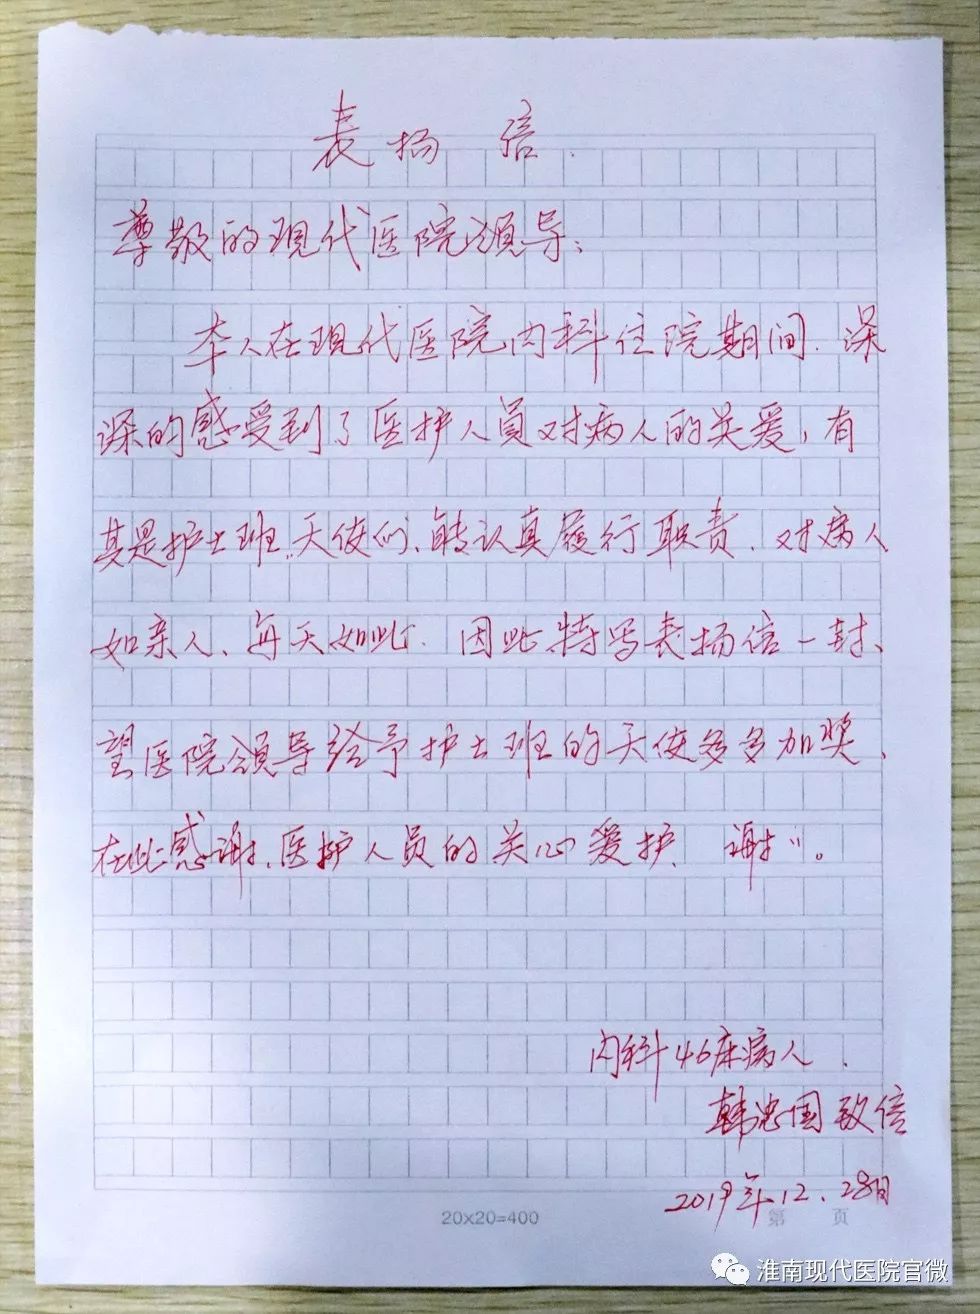 表扬信.
尊敬的现代医院领导：
本人在现代医院内科住院期间.深
深的感受到了医护人员对病人的关爱，有
其是护士班、天使们、能认真履行职责.对病人
如亲人、每天如此.因此特写表扬信一封、
望医院领导给予护士班的天使多多加奖、
在此感谢、医护人员的关心爱护、谢〃。
内科46床病人.
韩忠国致信
2019年12.28日
20×20=400
第 页
淮南现代医院官微